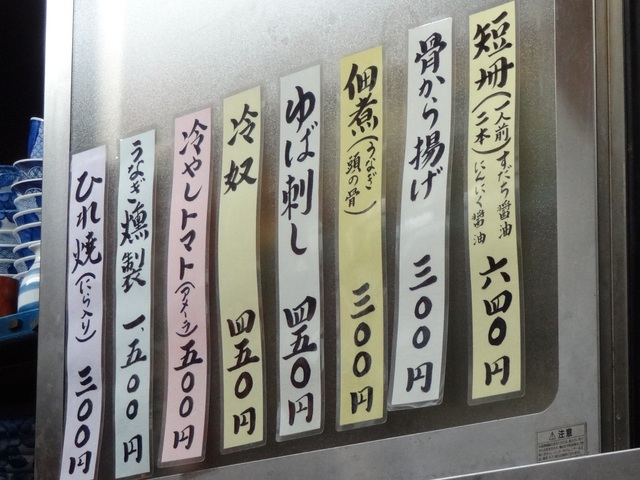 短冊(一人前二本)すだち醤油にんにく醤油 六四〇円
骨から揚げ 三〇〇円
佃煮(うなぎ頭の骨) 三〇〇円
ゆば刺し 四五〇円
冷奴 四五〇円
冷やしトマト(アメーラ) 五〇〇円
うなぎ燻製 一、五〇〇円
ひれ焼(にら入り) 三〇〇円
注意